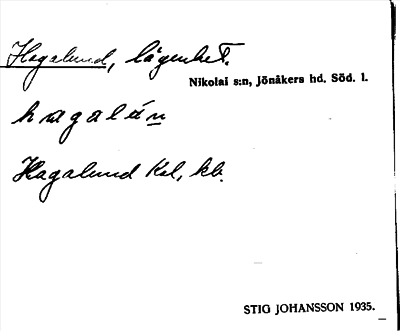 Hagalund, lägenhet.
Nikolai s:n, Jönåkers hd. Söd. l.
hagalún
Hagalund Kol, kb.
STIG JOHANSSON 1935.